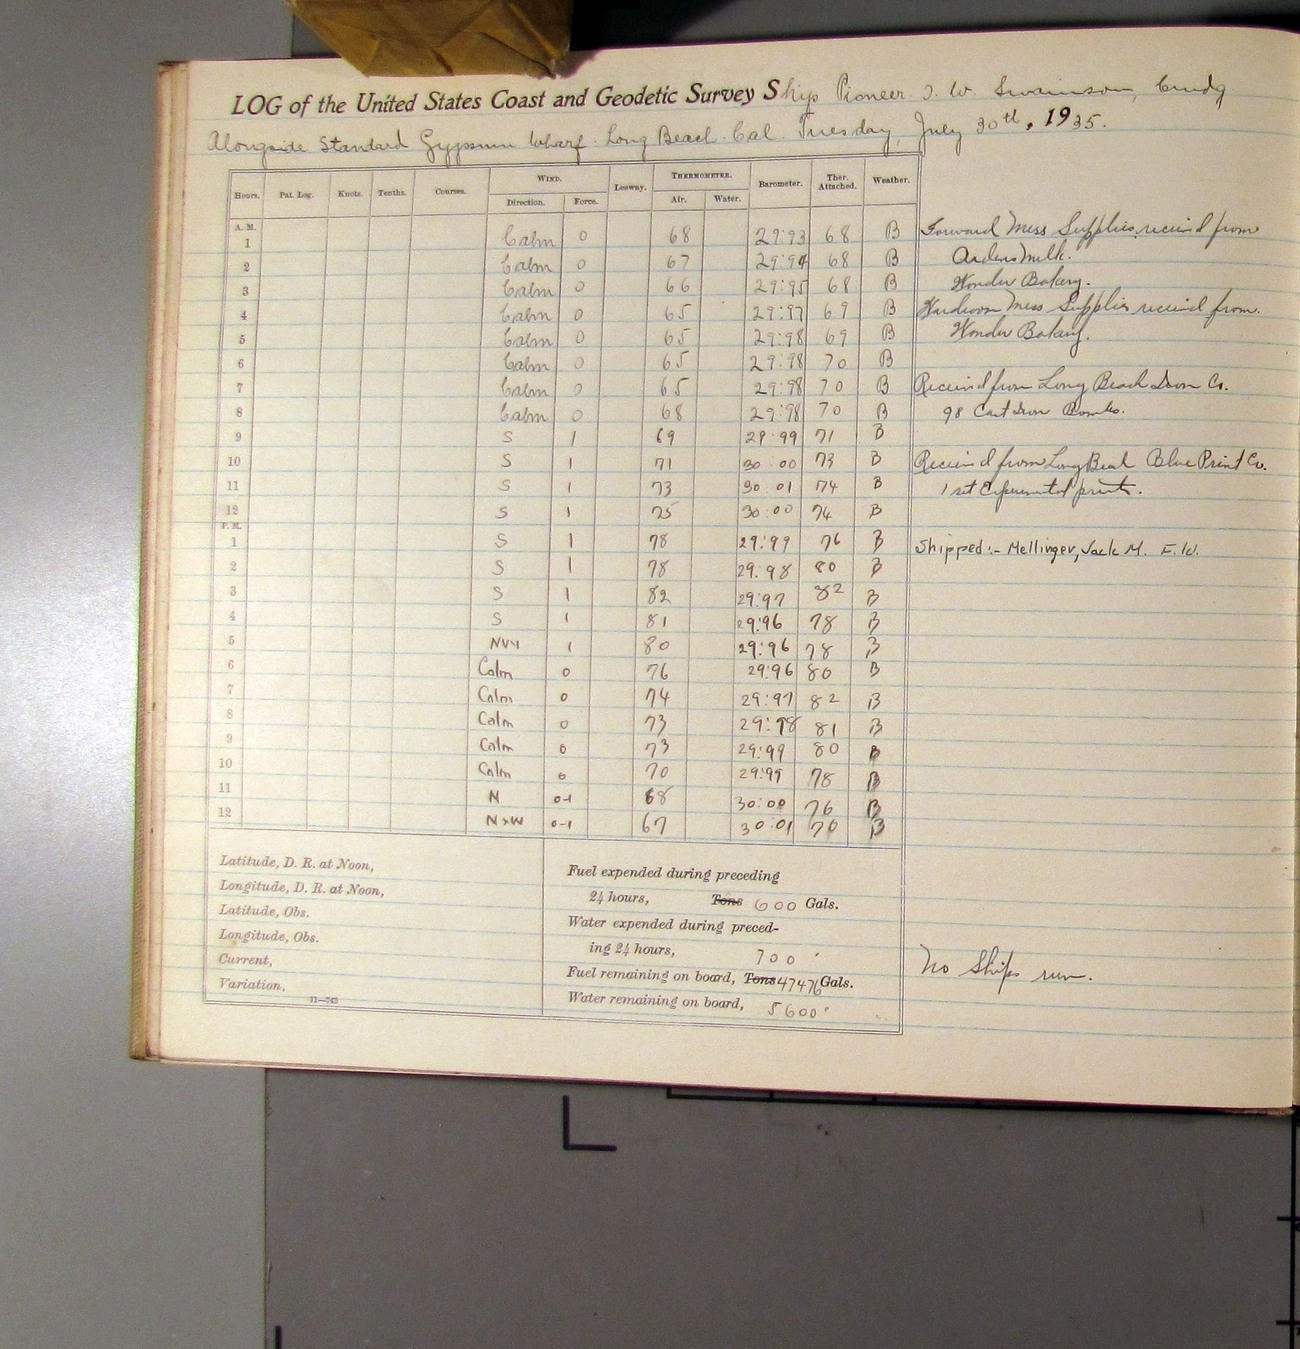 LOG of the United States Coast and Geodetic Survey Ship Pioneer. O. W. Swainson, Cmdg
Alongside Standard Gypsum Wharf. Long Beach. Cal. Tuesday, July 30th, 1935.
Hours. Pat. Log. Knots. Tenths. Courses. WIND. Direction. Force. Leeway. THERMOMETER. Air. Water. Barometer. Ther. Attached. Weather.
A. M.
1 Calm 0 68 29:93 68 B Forward Mess Supplies received from
2 Calm 0 67 29:94 68 B Ardens Milk.
3 Calm 0 66 29:95 68 B Wonder Bakery.
4 Calm 0 65 29:97 69 B Wardroom Mess Supplies received from.
5 Calm 0 65 29:98 69 B Wonder Bakery.
6 Calm 0 65 29:98 70 B
7 Calm 0 65 29:98 70 B Received from Long Beach Iron Co.
8 Calm 0 68 29:98 70 B 98 Cast Iron Bombs.
9 S 1 69 29:99 71 B
10 S 1 71 30:00 73 B Received from Long Beach Blue Print Co.
11 S 1 73 30:01 74 B 1 set Experimental prints.
12 S 1 75 30:00 74 B
P. M.
1 S 1 78 29:99 76 B Shipped:- Mellinger, Jack M. F.W.
2 S 1 78 29:98 80 B
3 S 1 82 29:97 82 B
4 S 1 81 29:96 78 B
5 NW 1 80 29:96 78 B
6 Calm 0 76 29:96 80 B
7 Calm 0 74 29:97 82 B
8 Calm 0 73 29:98 81 B
9 Calm 0 73 29:99 80 B
10 Calm 0 70 29:99 78 B
11 N 0-1 68 30:00 76 B
12 NxW 0-1 67 30:01 70 B
Latitude, D. R. at Noon,
Longitude, D. R. at Noon,
Latitude, Obs.
Longitude, Obs.
Current,
Variation,
11—743
Fuel expended during preceding
24 hours, Tons 600 Gals.
Water expended during preced-
ing 24 hours, 700 "
Fuel remaining on board, Tons 47476 Gals.
Water remaining on board, 5600 "
No Ships run.